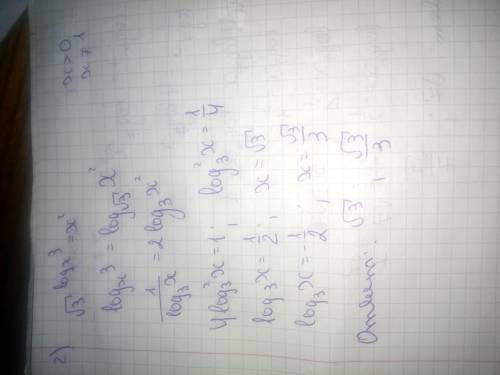 2) √3^(logₓ3) = x² x > 0
x ≠ 1
logₓ3 = log_√3 x²
1/log₃x = 2 log₃x²
4 log₃²x = 1; log₃²x = 1/4
log₃x = 1/2; x = √3
log₃x = -1/2; x = √3/3
Ответ: √3; √3/3